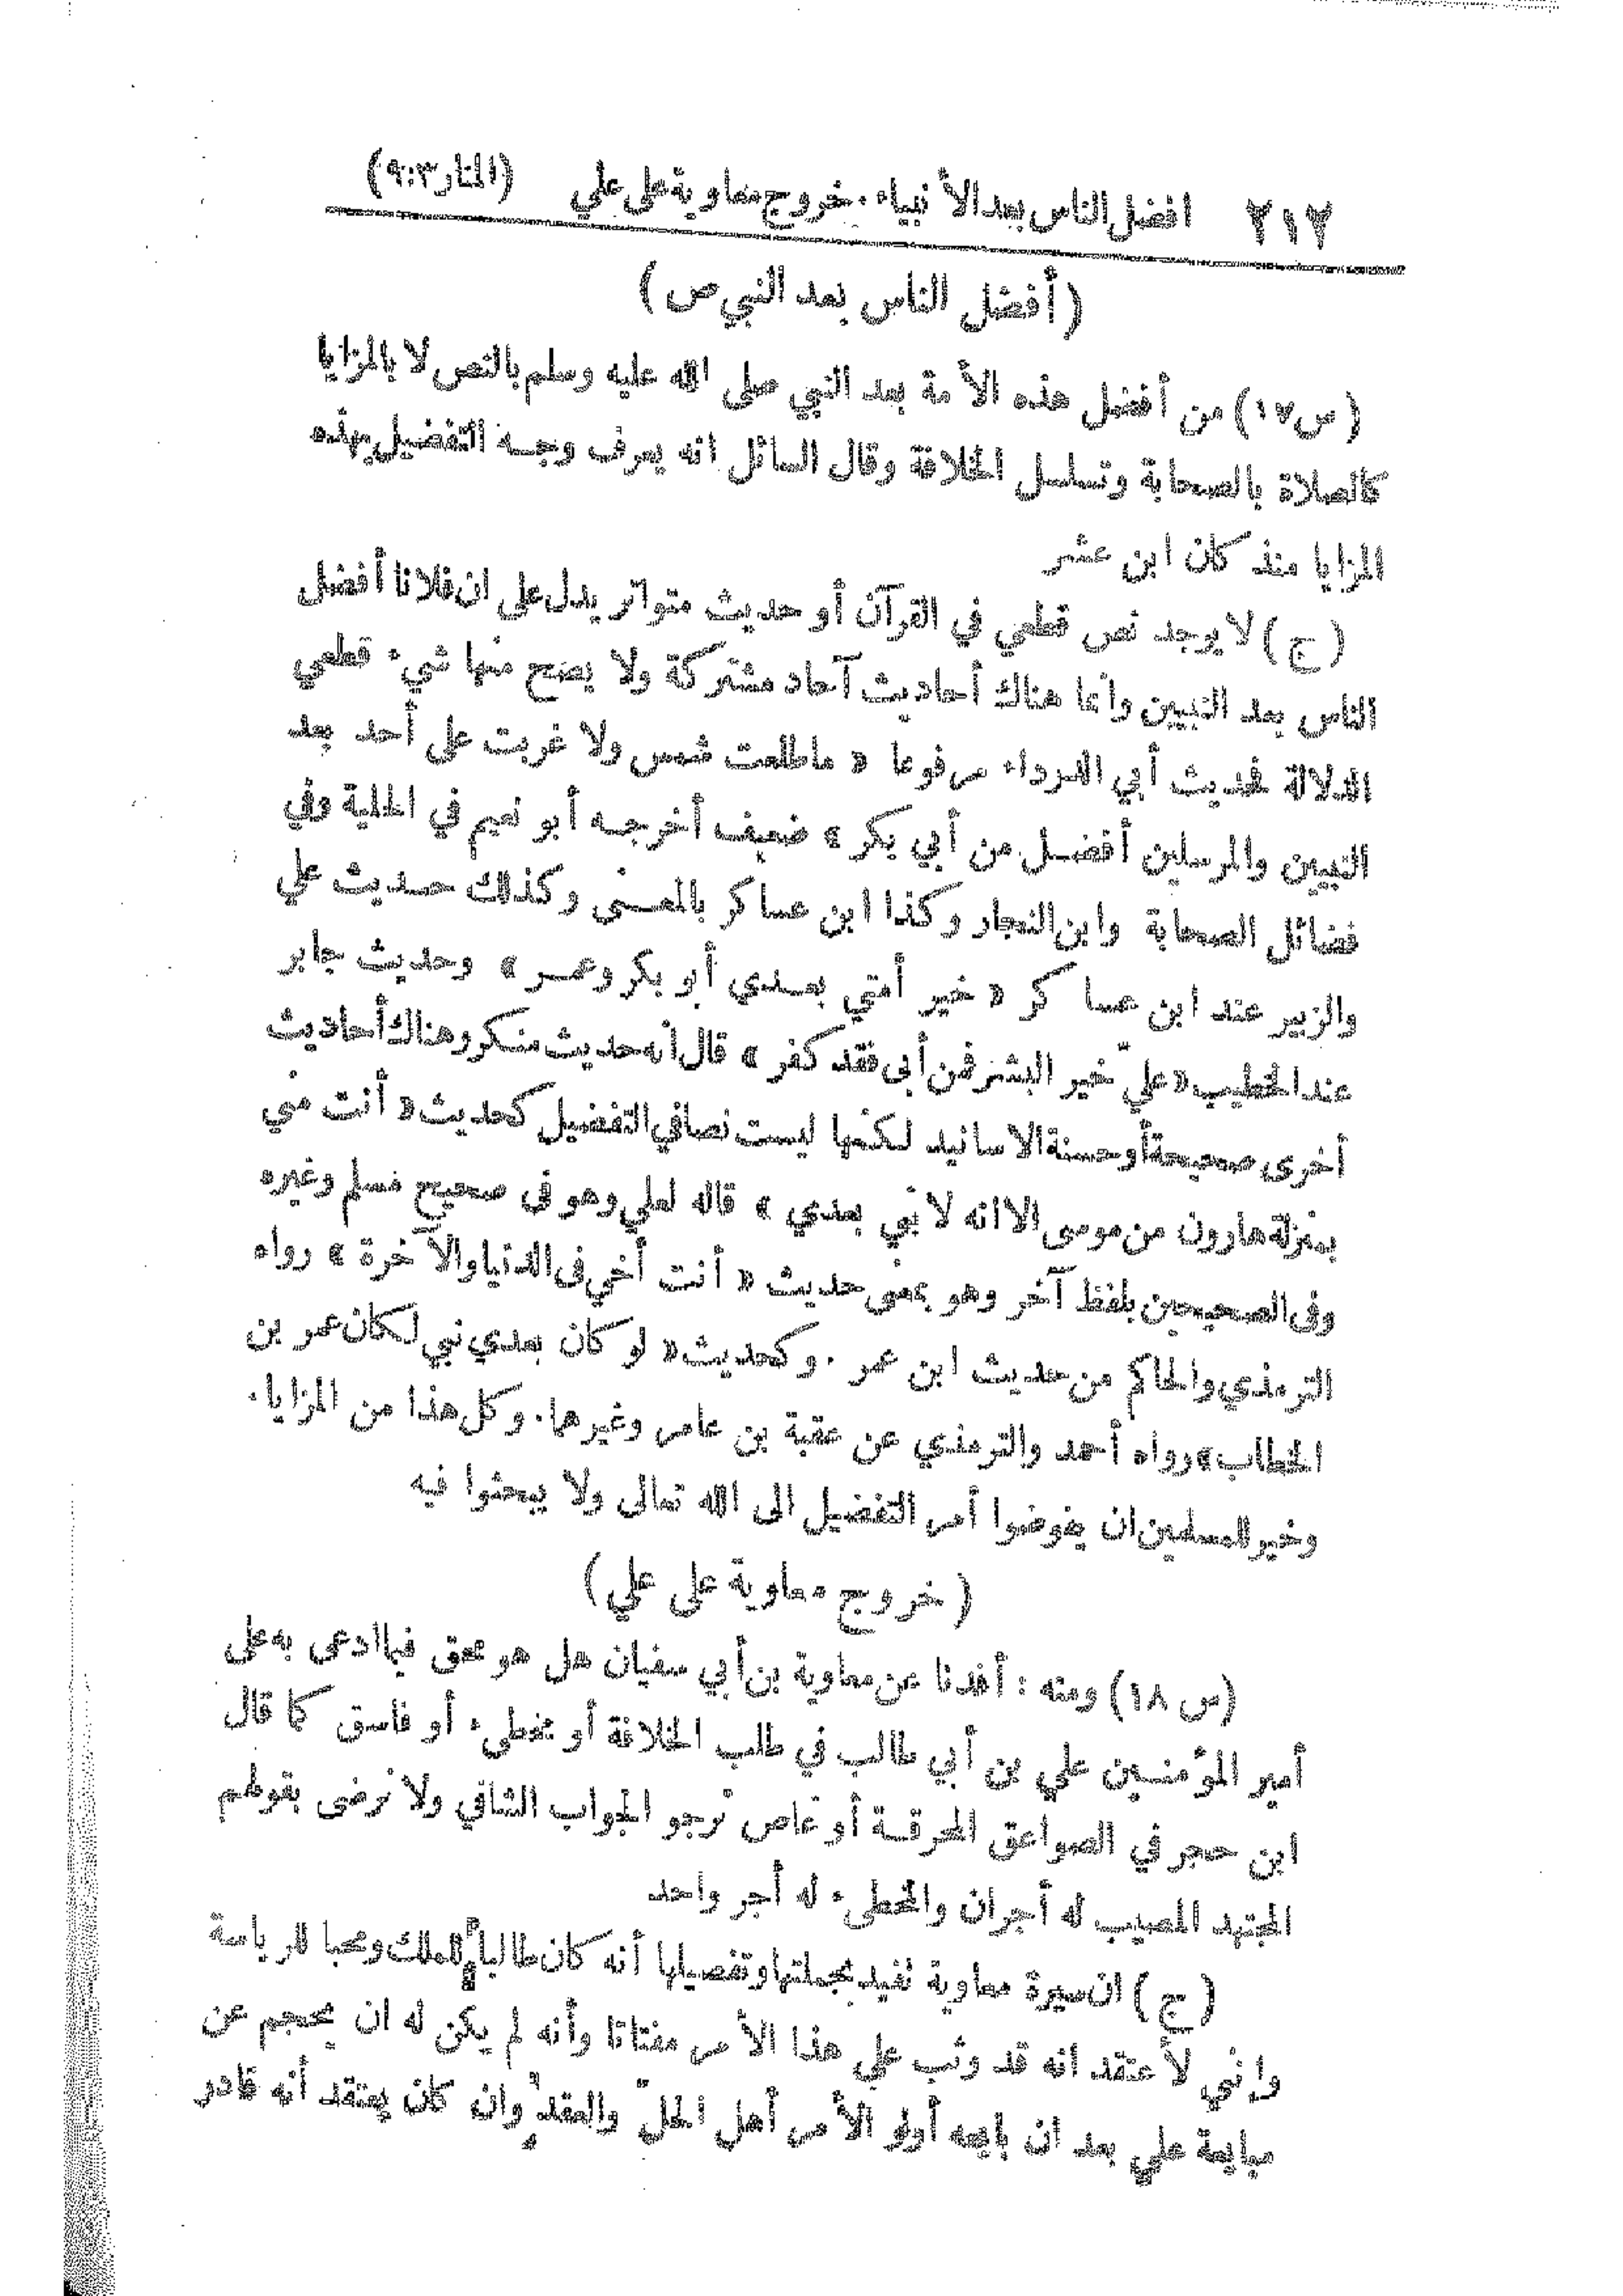 ٢١٢ افضل الناس بعد الأنبياء . خروج معاوية على علي (المنار ٩:٣)
(أفضل الناس بعد النبي ص)
(س١٧) من أفضل هذه الأمة بعد النبي صلى الله عليه وسلم بالنص لا بالمزايا
كالصلاة بالصحابة وتسلسل الخلافة وقال السائل انه يعرف وجه التفضيل بهذه
المزايا منذ كان ابن عشر
(ج) لا يوجد نص قطعي في القرآن أو حديث متواتر يدل على ان فلانا أفضل
الناس بعد النبيين وانما هناك أحاديث آحاد مشتركة ولا يصح منها شيء قطعي
الدلالة فحديث أبي الدرداء مرفوعا « ما طلعت شمس ولا غربت على أحد بعد
النبيين والمرسلين أفضل من أبي بكر » ضعيف أخرجه أبو نعيم في الحلية وفي
فضائل الصحابة وابن النجار وكذا ابن عساكر بالمعنى وكذلك حديث علي
والزبير عند ابن عساكر « خير أمتي بعدي أبو بكر وعمر » وحديث جابر
عند الخطيب « علي خير البشر فمن أبى فقد كفر » قال انه حديث منكر وهناك أحاديث
أخرى صحيحة أو حسنة الاسانيد لكنها ليست نصا في التفضيل كحديث « أنت مني
بمنزلة هارون من موسى الا انه لا نبي بعدي » قاله لعلي وهو فى صحيح مسلم وغيره
وفى الصحيحين بلفظ آخر وهو بمعنى حديث « أنت أخي فى الدنيا والآخرة » رواه
الترمذي والحاكم من حديث ابن عمر . وكحديث « لو كان بعدي نبي لكان عمر بن
الخطاب » رواه أحمد والترمذي عن عقبة بن عامر وغيرهما . وكل هذا من المزايا .
وخير للمسلمين ان يفوضوا أمر التفضيل الى الله تعالى ولا يبحثوا فيه
(خروج معاوية على علي)
(س ١٨) ومنه : أفدنا عن معاوية بن أبي سفيان هل هو محق فيما ادعى به على
أمير المؤمنين علي بن أبي طالب في طلب الخلافة أو مخطئ أو فاسق كما قال
ابن حجر في الصواعق المحرقة أو عاص نرجو الجواب الشافي ولا نرضى بقولهم
المجتهد المصيب له أجران والمخطئ له أجر واحد
(ج) ان سيرة معاوية تفيد بجملتها وتفصيلها أنه كان طالبا للملك ومحبا للرياسة
وإني لأعتقد انه قد وثب على هذا الأمر مفتاتا وأنه لم يكن له ان يحجم عن
مبايعة علي بعد ان بايعه أولو الأمر أهل الحل والعقد وان كان يعتقد أنه قادر